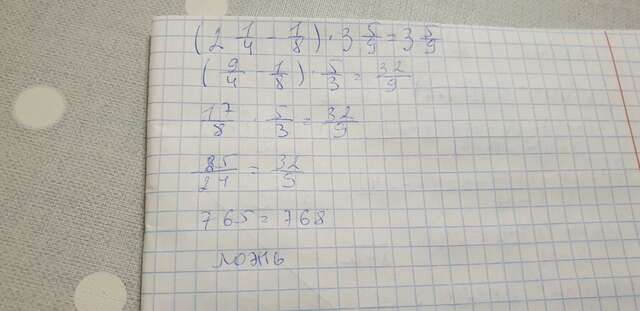 (2 1/4 - 1/8) · 3 5/9 = 3 5/9
(9/4 - 1/8) · 5/3 = 32/9
17/8 · 5/3 = 32/9
85/24 = 32/9
765 = 768
ложь